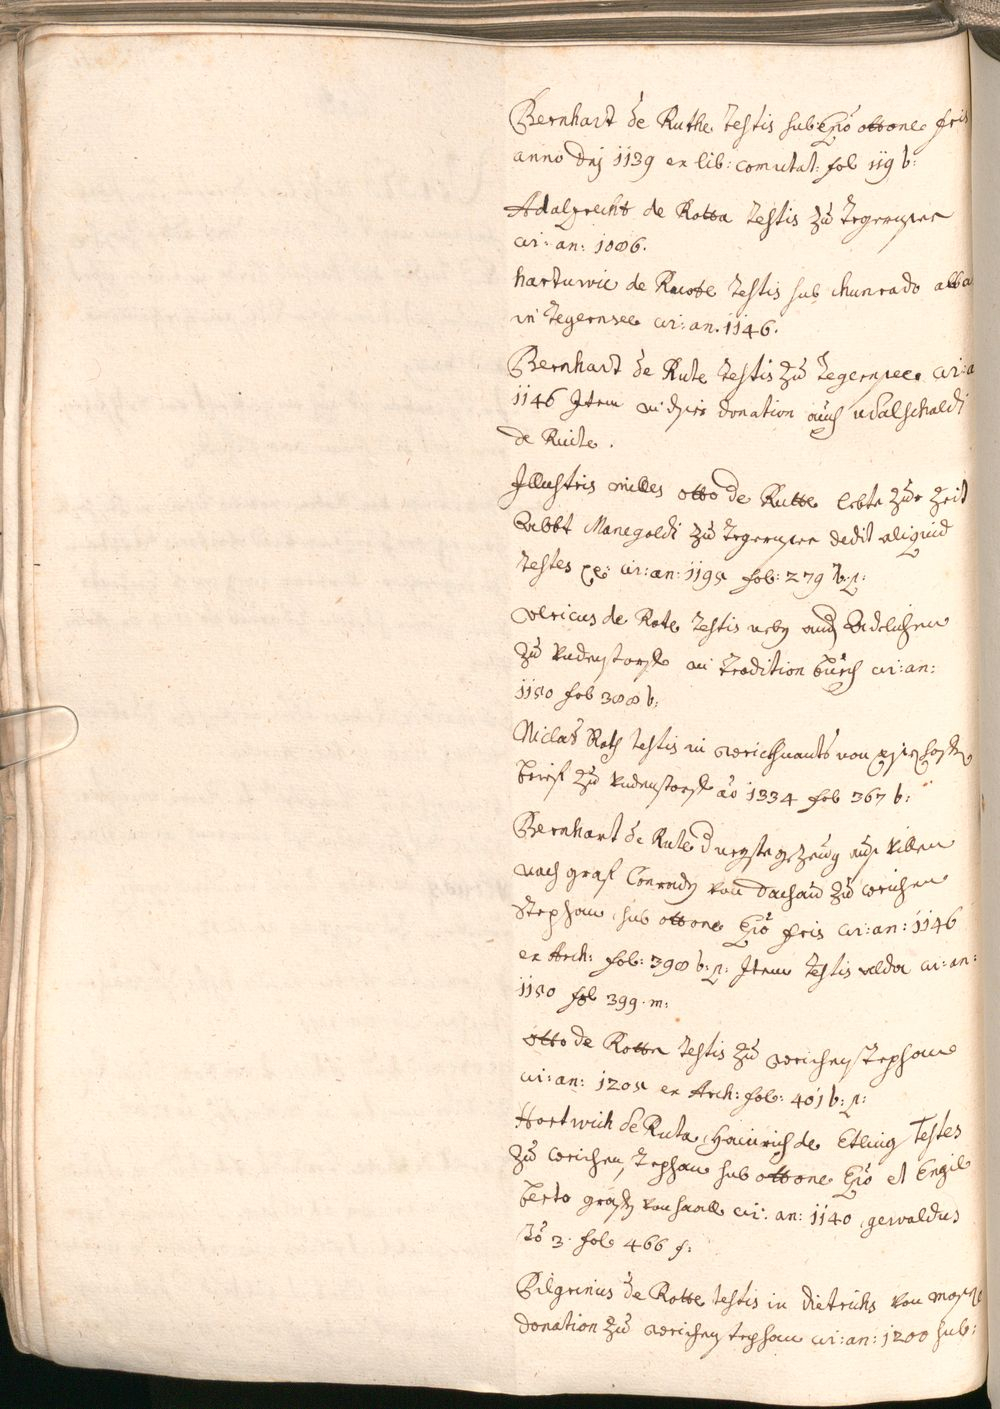 Bernhart de Ruthe testis sub Epō ottone fris
anno Dnj 1139 ex lib: comutat: fol 119 b:
Adalprecht de Rotta testis zū tegernsee
cir: an: 1006.
hartuwic de Ruote testis sub chunrado abba
in tegernsee cir: an. 1146.
Bernhart de Rute testis zū tegernsee cir: a
1146 Item in donation auch udalschaldi
de Ruite.
Illustris milles otto de Rutte lebte zur zeit
Abbt Manegoldi zū tegernsee dedit aliquid
testes cir: an: 1195 fol: 279 b.
Ulricus de Rote testis neben andern Adelichen
zū undenstorff in tradition cir: an:
1150 fol 300 b:
Niclas Roth testis in von
brief zū undenstorff aō 1334 fol 367 b:
Bernhart de Rute der zeug auß Willen
nach graf Conradn von Dachau zū weichen
Stephan sub ottone Epō fris cir: an: 1146
ex Arch: fol: 390 b: Item testis cir: an:
1150 fol 399. m:
otto de Rotten testis zū weichenstephan
cir: an: 1205 ex Arch: fol: 401 b:
Hortwich de Ruta, Heinrich de Etling Testes
zū weichen Stephan sub ottone Epō et Engil
berto grafen cir: an: 1140, gewoldus
tō 3. fol: 466 f:
Pilgrinus de Rotte testis in dietrichs von
donation zū weichenstephan cir: an: 1200 sub: